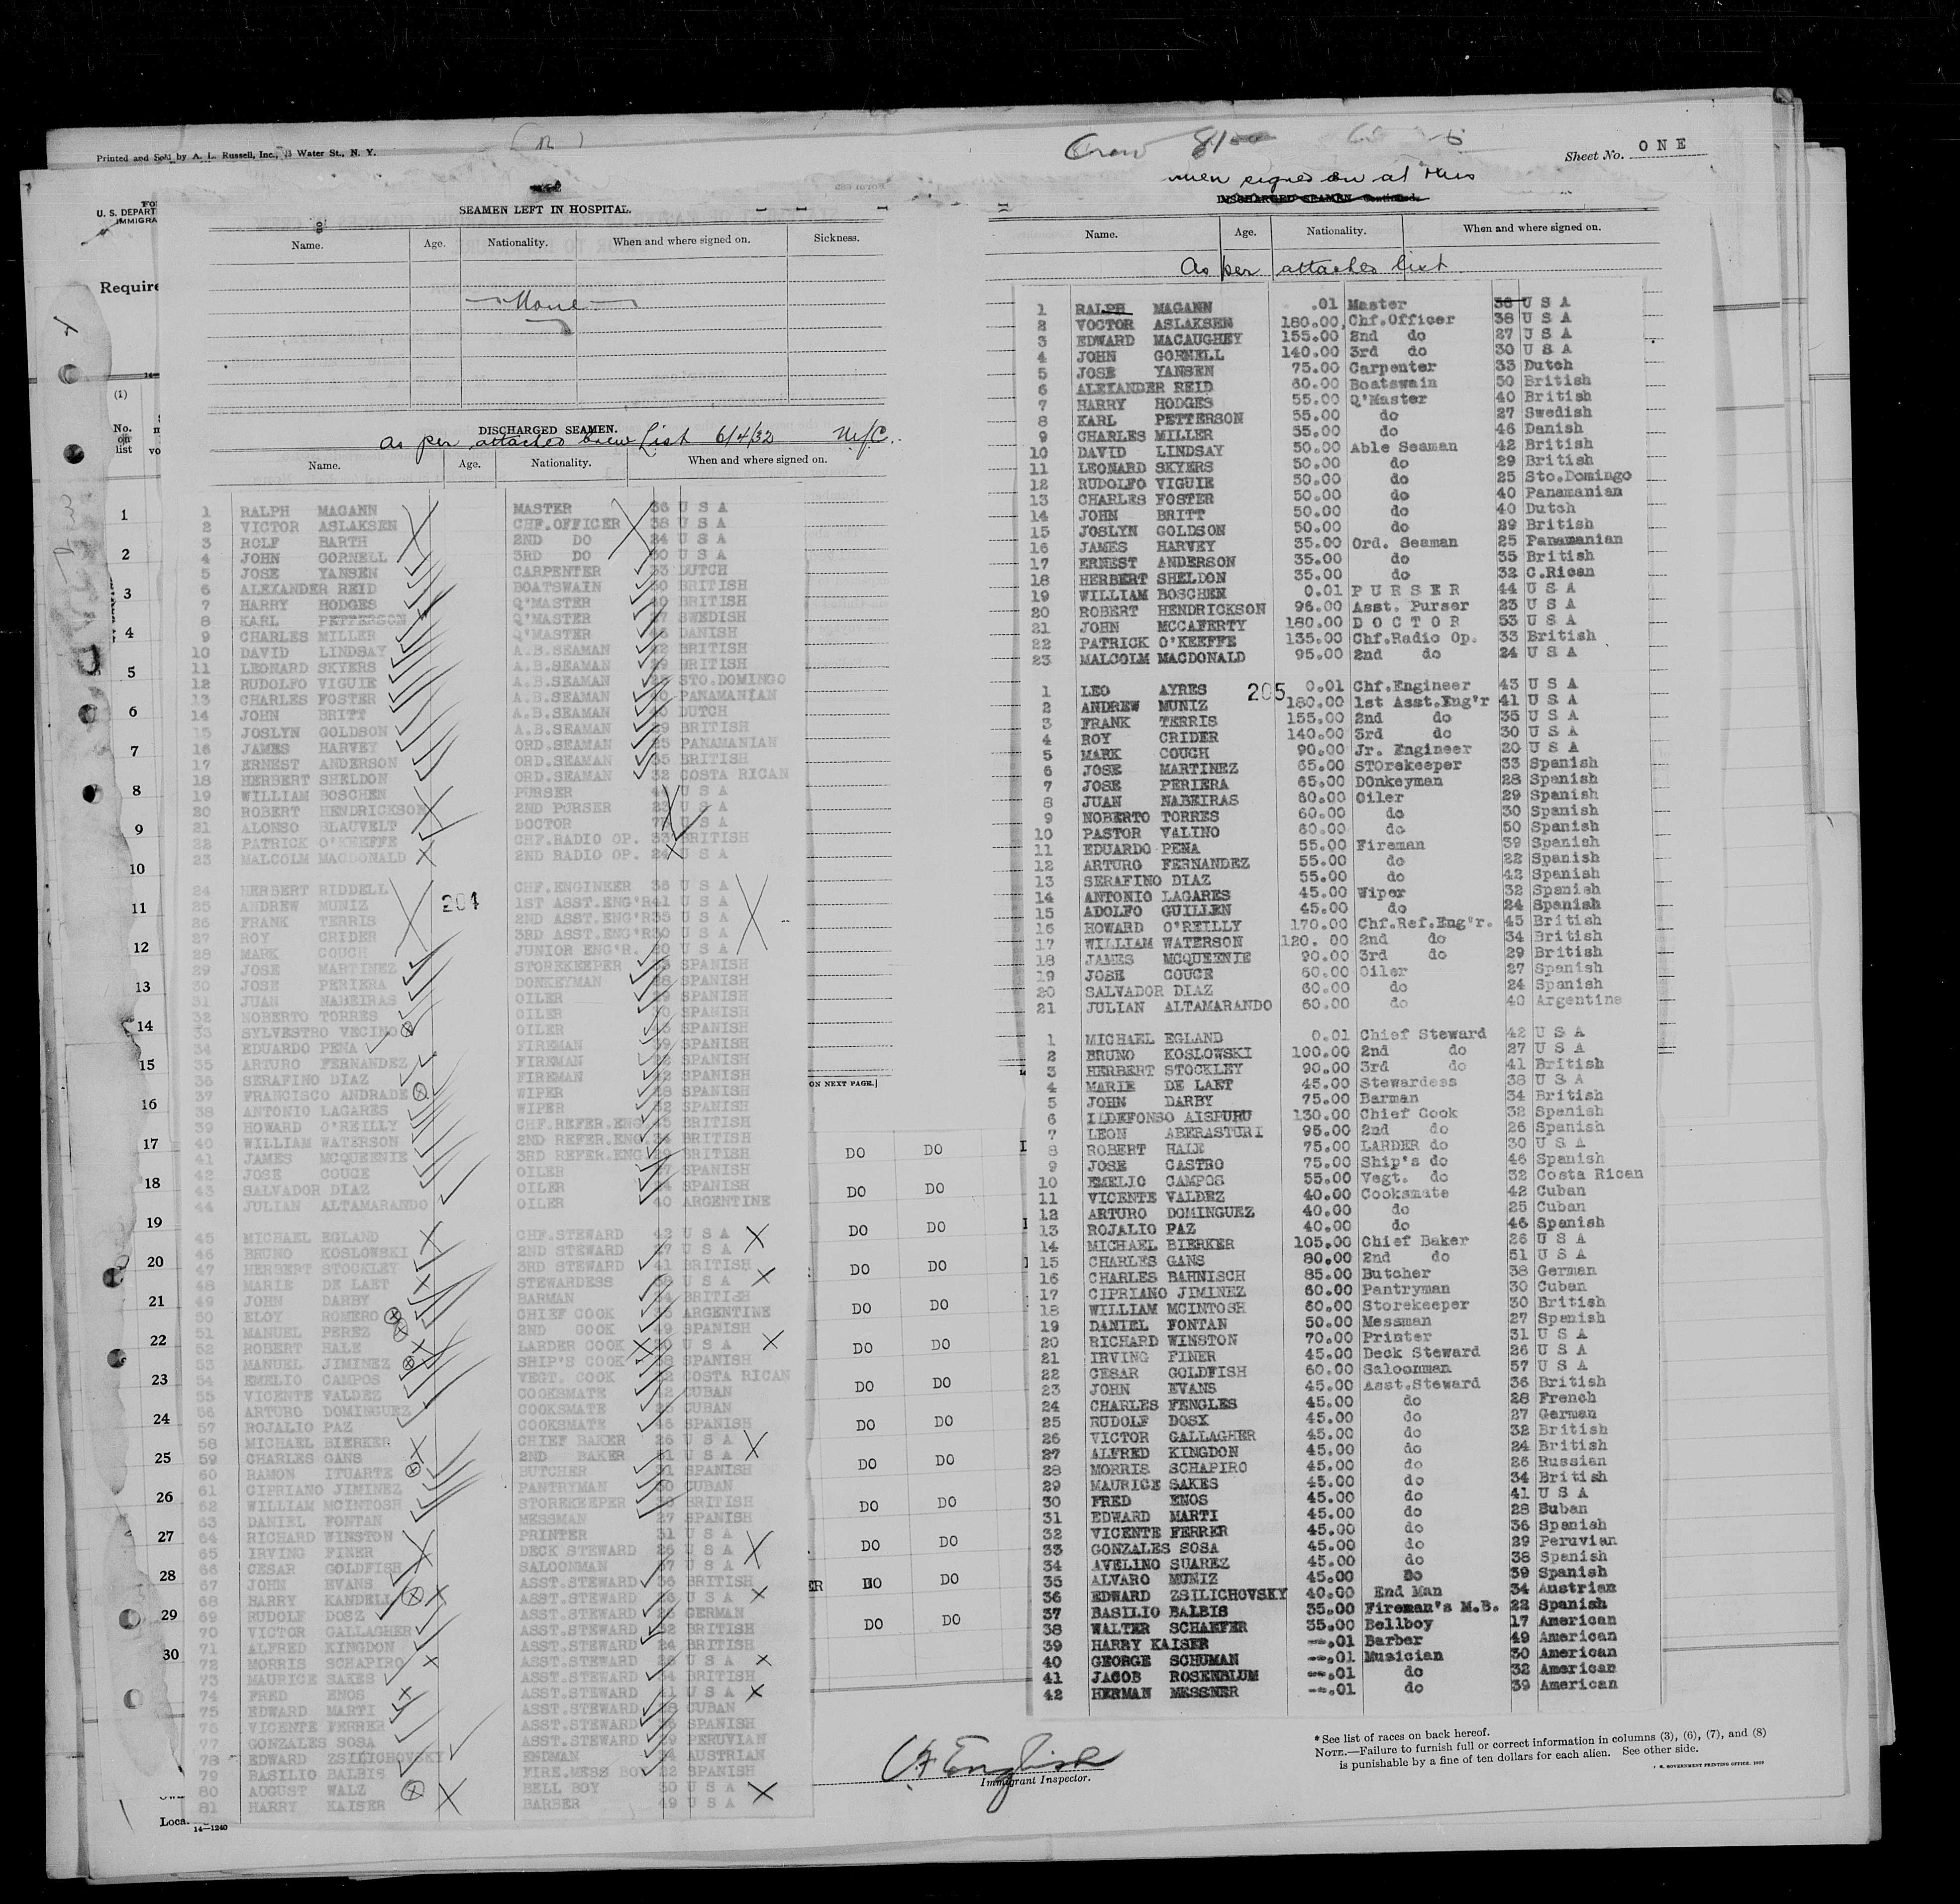 Printed and Sold by A. L. Russell, Inc., Water St., N. Y.
Sheet No. ONE
U. S. DEPART
IMMIGRA
Require
(1)
No. on list
SEAMEN LEFT IN HOSPITAL.
Name. Age. Nationality. When and where signed on. Sickness.
None
DISCHARGED SEAMEN.
as per attached crew list 6/4/32
Name. Age. Nationality. When and where signed on.
1 RALPH MAGANN MASTER 36 U S A
2 VICTOR ASLAKSEN CHF.OFFICER 38 U S A
3 ROLF BARTH 2ND DO 24 U S A
4 JOHN GORNELL 3RD DO 30 U S A
5 JOSE YANSEN CARPENTER 33 DUTCH
6 ALEXANDER REID BOATSWAIN 50 BRITISH
7 HARRY HODGES Q'MASTER 40 BRITISH
8 KARL PETTERSON Q'MASTER 27 SWEDISH
9 CHARLES MILLER Q'MASTER 46 DANISH
10 DAVID LINDSAY A.B.SEAMAN 42 BRITISH
11 LEONARD SKYERS A.B.SEAMAN 29 BRITISH
12 RUDOLFO VIGUIE A.B.SEAMAN 25 STO.DOMINGO
13 CHARLES FOSTER A.B.SEAMAN 40 PANAMANIAN
14 JOHN BRITT A.B.SEAMAN 40 DUTCH
15 JOSLYN GOLDSON A.B.SEAMAN 29 BRITISH
16 JAMES HARVEY ORD.SEAMAN 25 PANAMANIAN
17 ERNEST ANDERSON ORD.SEAMAN 35 BRITISH
18 HERBERT SHELDON ORD.SEAMAN 32 COSTA RICAN
19 WILLIAM BOSCHEN PURSER 44 U S A
20 ROBERT HENDRICKSON 2ND PURSER 23 U S A
21 ALONSO BLAUVELT DOCTOR U S A
22 PATRICK O'KEEFFE CHF.RADIO OP. 33 BRITISH
23 MALCOLM MACDONALD 2ND RADIO OP. 24 U S A
24 HERBERT RIDDELL CHF.ENGINEER 36 U S A
204
25 ANDREW MUNIZ 1ST ASST.ENG'R 41 U S A
26 FRANK TERRIS 2ND ASST.ENG'R 35 U S A
27 ROY CRIDER 3RD ASST.ENG'R 30 U S A
28 MARK COUCH JUNIOR ENG'R. 20 U S A
29 JOSE MARTINEZ STOREKEEPER 33 SPANISH
30 JOSE PERIERA DONKEYMAN 28 SPANISH
31 JUAN NABEIRAS OILER 29 SPANISH
32 NOBERTO TORRES OILER 30 SPANISH
33 SYLVESTRO VECINO OILER SPANISH
34 EDUARDO PENA FIREMAN 39 SPANISH
35 ARTURO FERNANDEZ FIREMAN 22 SPANISH
36 SERAFINO DIAZ FIREMAN 42 SPANISH
37 FRANCISCO ANDRADE WIPER SPANISH
38 ANTONIO LAGARES WIPER 32 SPANISH
39 HOWARD O'REILLY CHF.REFER.ENG. 45 BRITISH
40 WILLIAM WATERSON 2ND REFER.ENG. 34 BRITISH
41 JAMES MCQUEENIE 3RD REFER.ENG. 29 BRITISH
42 JOSE COUCE OILER 27 SPANISH
43 SALVADOR DIAZ OILER 24 SPANISH
44 JULIAN ALTAMARANDO OILER 40 ARGENTINE
45 MICHAEL EGLAND CHF.STEWARD 42 U S A
46 BRUNO KOSLOWSKI 2ND STEWARD 27 U S A
47 HERBERT STOCKLEY 3RD STEWARD 41 BRITISH
48 MARIE DE LAET STEWARDESS 38 U S A
49 JOHN DARBY BARMAN 34 BRITISH
50 ELOY ROMERO CHIEF COOK ARGENTINE
51 MANUEL PEREZ 2ND COOK 49 SPANISH
52 ROBERT HALE LARDER COOK 30 U S A
53 MANUEL JIMINEZ SHIP'S COOK SPANISH
54 EMELIO CAMPOS VEGT. COOK 32 COSTA RICAN
55 VICENTE VALDEZ COOKSMATE 42 CUBAN
56 ARTURO DOMINGUEZ COOKSMATE 25 CUBAN
57 ROJALIO PAZ COOKSMATE 46 SPANISH
58 MICHAEL BIERKER CHIEF BAKER 26 U S A
59 CHARLES GANS 2ND BAKER 51 U S A
60 RAMON ITUARTE BUTCHER 31 SPANISH
61 CIPRIANO JIMINEZ PANTRYMAN 30 CUBAN
62 WILLIAM MCINTOSH STOREKEEPER 30 BRITISH
63 DANIEL FONTAN MESSMAN 27 SPANISH
64 RICHARD WINSTON PRINTER 31 U S A
65 IRVING FINER DECK STEWARD 26 U S A
66 CESAR GOLDFISH SALOONMAN 57 U S A
67 JOHN EVANS ASST.STEWARD 36 BRITISH
68 HARRY KANDELL ASST.STEWARD U S A
69 RUDOLF DOSZ ASST.STEWARD GERMAN
70 VICTOR GALLAGHER ASST.STEWARD 32 BRITISH
71 ALFRED KINGDON ASST.STEWARD 24 BRITISH
72 MORRIS SCHAPIRO ASST.STEWARD 26 U S A
73 MAURICE SAKES ASST.STEWARD 34 BRITISH
74 FRED ENOS ASST.STEWARD 41 U S A
75 EDWARD MARTI ASST.STEWARD 28 CUBAN
76 VICENTE FERRER ASST.STEWARD 36 SPANISH
77 GONZALES SOSA ASST.STEWARD 29 PERUVIAN
78 EDWARD ZSILICHOVSKY ENDMAN 34 AUSTRIAN
79 BASILIO BALBIS FIRE.MESS BOY 22 SPANISH
80 AUGUST WALZ BELL BOY 30 U S A
81 HARRY KAISER BARBER 49 U S A
14—1240
Loca.
1
2
3
4
5
6
7
8
9
10
11
12
13
14
15
16
17
18
19
20
21
22
23
24
25
26
27
28
29
30
ON NEXT PAGE.]
DO DO
DO DO
DO DO
DO DO
DO DO
DO DO
DO DO
DO DO
DO DO
DO DO
DO DO
ER DO DO
DO DO
men signed on at this
DISCHARGED SEAMEN—Continued.
Name. Age. Nationality. When and where signed on.
As per attached list
1 RALPH MAGANN .01 Master 36 U S A
2 VOCTOR ASLAKSEN 180.00 Chf.Officer 38 U S A
3 EDWARD MACAUGHEY 155.00 2nd do 27 U S A
4 JOHN GORNELL 140.00 3rd do 30 U S A
5 JOSE YANSEN 75.00 Carpenter 33 Dutch
6 ALEXANDER REID 60.00 Boatswain 50 British
7 HARRY HODGES 55.00 Q'Master 40 British
8 KARL PETTERSON 55.00 do 27 Swedish
9 CHARLES MILLER 55.00 do 46 Danish
10 DAVID LINDSAY 50.00 Able Seaman 42 British
11 LEONARD SKYERS 50.00 do 29 British
12 RUDOLFO VIGUIE 50.00 do 25 Sto.Domingo
13 CHARLES FOSTER 50.00 do 40 Panamanian
14 JOHN BRITT 50.00 do 40 Dutch
15 JOSLYN GOLDSON 50.00 do 29 British
16 JAMES HARVEY 35.00 Ord. Seaman 25 Panamanian
17 ERNEST ANDERSON 35.00 do 35 British
18 HERBERT SHELDON 35.00 do 32 C.Rican
19 WILLIAM BOSCHEN 0.01 P U R S E R 44 U S A
20 ROBERT HENDRICKSON 96.00 Asst. Purser 23 U S A
21 JOHN MCCAFERTY 180.00 D O C T O R 53 U S A
22 PATRICK O'KEEFFE 135.00 Chf.Radio Op. 33 British
23 MALCOLM MACDONALD 95.00 2nd do 24 U S A
205
1 LEO AYRES 0.01 Chf.Engineer 43 U S A
2 ANDREW MUNIZ 180.00 1st Asst.Eng'r 41 U S A
3 FRANK TERRIS 155.00 2nd do 35 U S A
4 ROY CRIDER 140.00 3rd do 30 U S A
5 MARK COUCH 90.00 Jr. Engineer 20 U S A
6 JOSE MARTINEZ 65.00 STOrekeeper 33 Spanish
7 JOSE PERIERA 65.00 DOnkeyman 28 Spanish
8 JUAN NABEIRAS 60.00 Oiler 29 Spanish
9 NOBERTO TORRES 60.00 do 30 Spanish
10 PASTOR VALINO 60.00 do 50 Spanish
11 EDUARDO PENA 55.00 Fireman 39 Spanish
12 ARTURO FERNANDEZ 55.00 do 22 Spanish
13 SERAFINO DIAZ 55.00 do 42 Spanish
14 ANTONIO LAGARES 45.00 Wiper 32 Spanish
15 ADOLFO GUILLEN 45.00 do 24 Spanish
16 HOWARD O'REILLY 170.00 Chf.Ref.Eng'r. 45 British
17 WILLIAM WATERSON 120. 00 2nd do 34 British
18 JAMES MCQUEENIE 90.00 3rd do 29 British
19 JOSE COUCE 60.00 Oiler 27 Spanish
20 SALVADOR DIAZ 60.00 do 24 Spanish
21 JULIAN ALTAMARANDO 60.00 do 40 Argentine
1 MICHAEL EGLAND 0.01 Chief Steward 42 U S A
2 BRUNO KOSLOWSKI 100.00 2nd do 27 U S A
3 HERBERT STOCKLEY 90.00 3rd do 41 British
4 MARIE DE LAET 45.00 Stewardess 38 U S A
5 JOHN DARBY 75.00 Barman 34 British
6 ILDEFONSO AISPURU 130.00 Chief Cook 32 Spanish
7 LEON ABERASTURI 95.00 2nd do 26 Spanish
8 ROBERT HALE 75.00 LARDER do 30 U S A
9 JOSE CASTRO 75.00 Ship's do 46 Spanish
10 EMELIO CAMPOS 55.00 Vegt. do 32 Costa Rican
11 VICENTE VALDEZ 40.00 Cooksmate 42 Cuban
12 ARTURO DOMINGUEZ 40.00 do 25 Cuban
13 ROJALIO PAZ 40.00 do 46 Spanish
14 MICHAEL BIERKER 105.00 Chief Baker 26 U S A
15 CHARLES GANS 80.00 2nd do 51 U S A
16 CHARLES BAHNISCH 85.00 Butcher 38 German
17 CIPRIANO JIMINEZ 60.00 Pantryman 30 Cuban
18 WILLIAM MCINTOSH 60.00 Storekeeper 30 British
19 DANIEL FONTAN 50.00 Messman 27 Spanish
20 RICHARD WINSTON 70.00 Printer 31 U S A
21 IRVING FINER 45.00 Deck Steward 26 U S A
22 CESAR GOLDFISH 60.00 Saloonman 57 U S A
23 JOHN EVANS 45.00 Asst.Steward 36 British
24 CHARLES FENGLES 45.00 do 28 French
25 RUDOLF DOSX 45.00 do 27 German
26 VICTOR GALLAGHER 45.00 do 32 British
27 ALFRED KINGDON 45.00 do 24 British
28 MORRIS SCHAPIRO 45.00 do 26 Russian
29 MAURICE SAKES 45.00 do 34 British
30 FRED ENOS 45.00 do 41 U S A
31 EDWARD MARTI 45.00 do 28 Buban
32 VICENTE FERRER 45.00 do 36 Spanish
33 GONZALES SOSA 45.00 do 29 Peruvian
34 AVELINO SUAREZ 45.00 do 38 Spanish
35 ALVARO MUNIZ 45.00 Do 39 Spanish
36 EDWARD ZSILICHOVSKY 40.00 End Man 34 Austrian
37 BASILIO BALBIS 35.00 Fireman's M.B. 22 Spanish
38 WALTER SCHAEFER 35.00 Bellboy 17 American
39 HARRY KAISER --.01 Barber 49 American
40 GEORGE SCHUMAN --.01 Musician 30 American
41 JACOB ROSENBLUM --.01 do 32 American
42 HERMAN MESSNER --.01 do 39 American
English
Immigrant Inspector.
* See list of races on back hereof.
NOTE.—Failure to furnish full or correct information in columns (3), (6), (7), and (8)
is punishable by a fine of ten dollars for each alien. See other side.
GOVERNMENT PRINTING OFFICE.